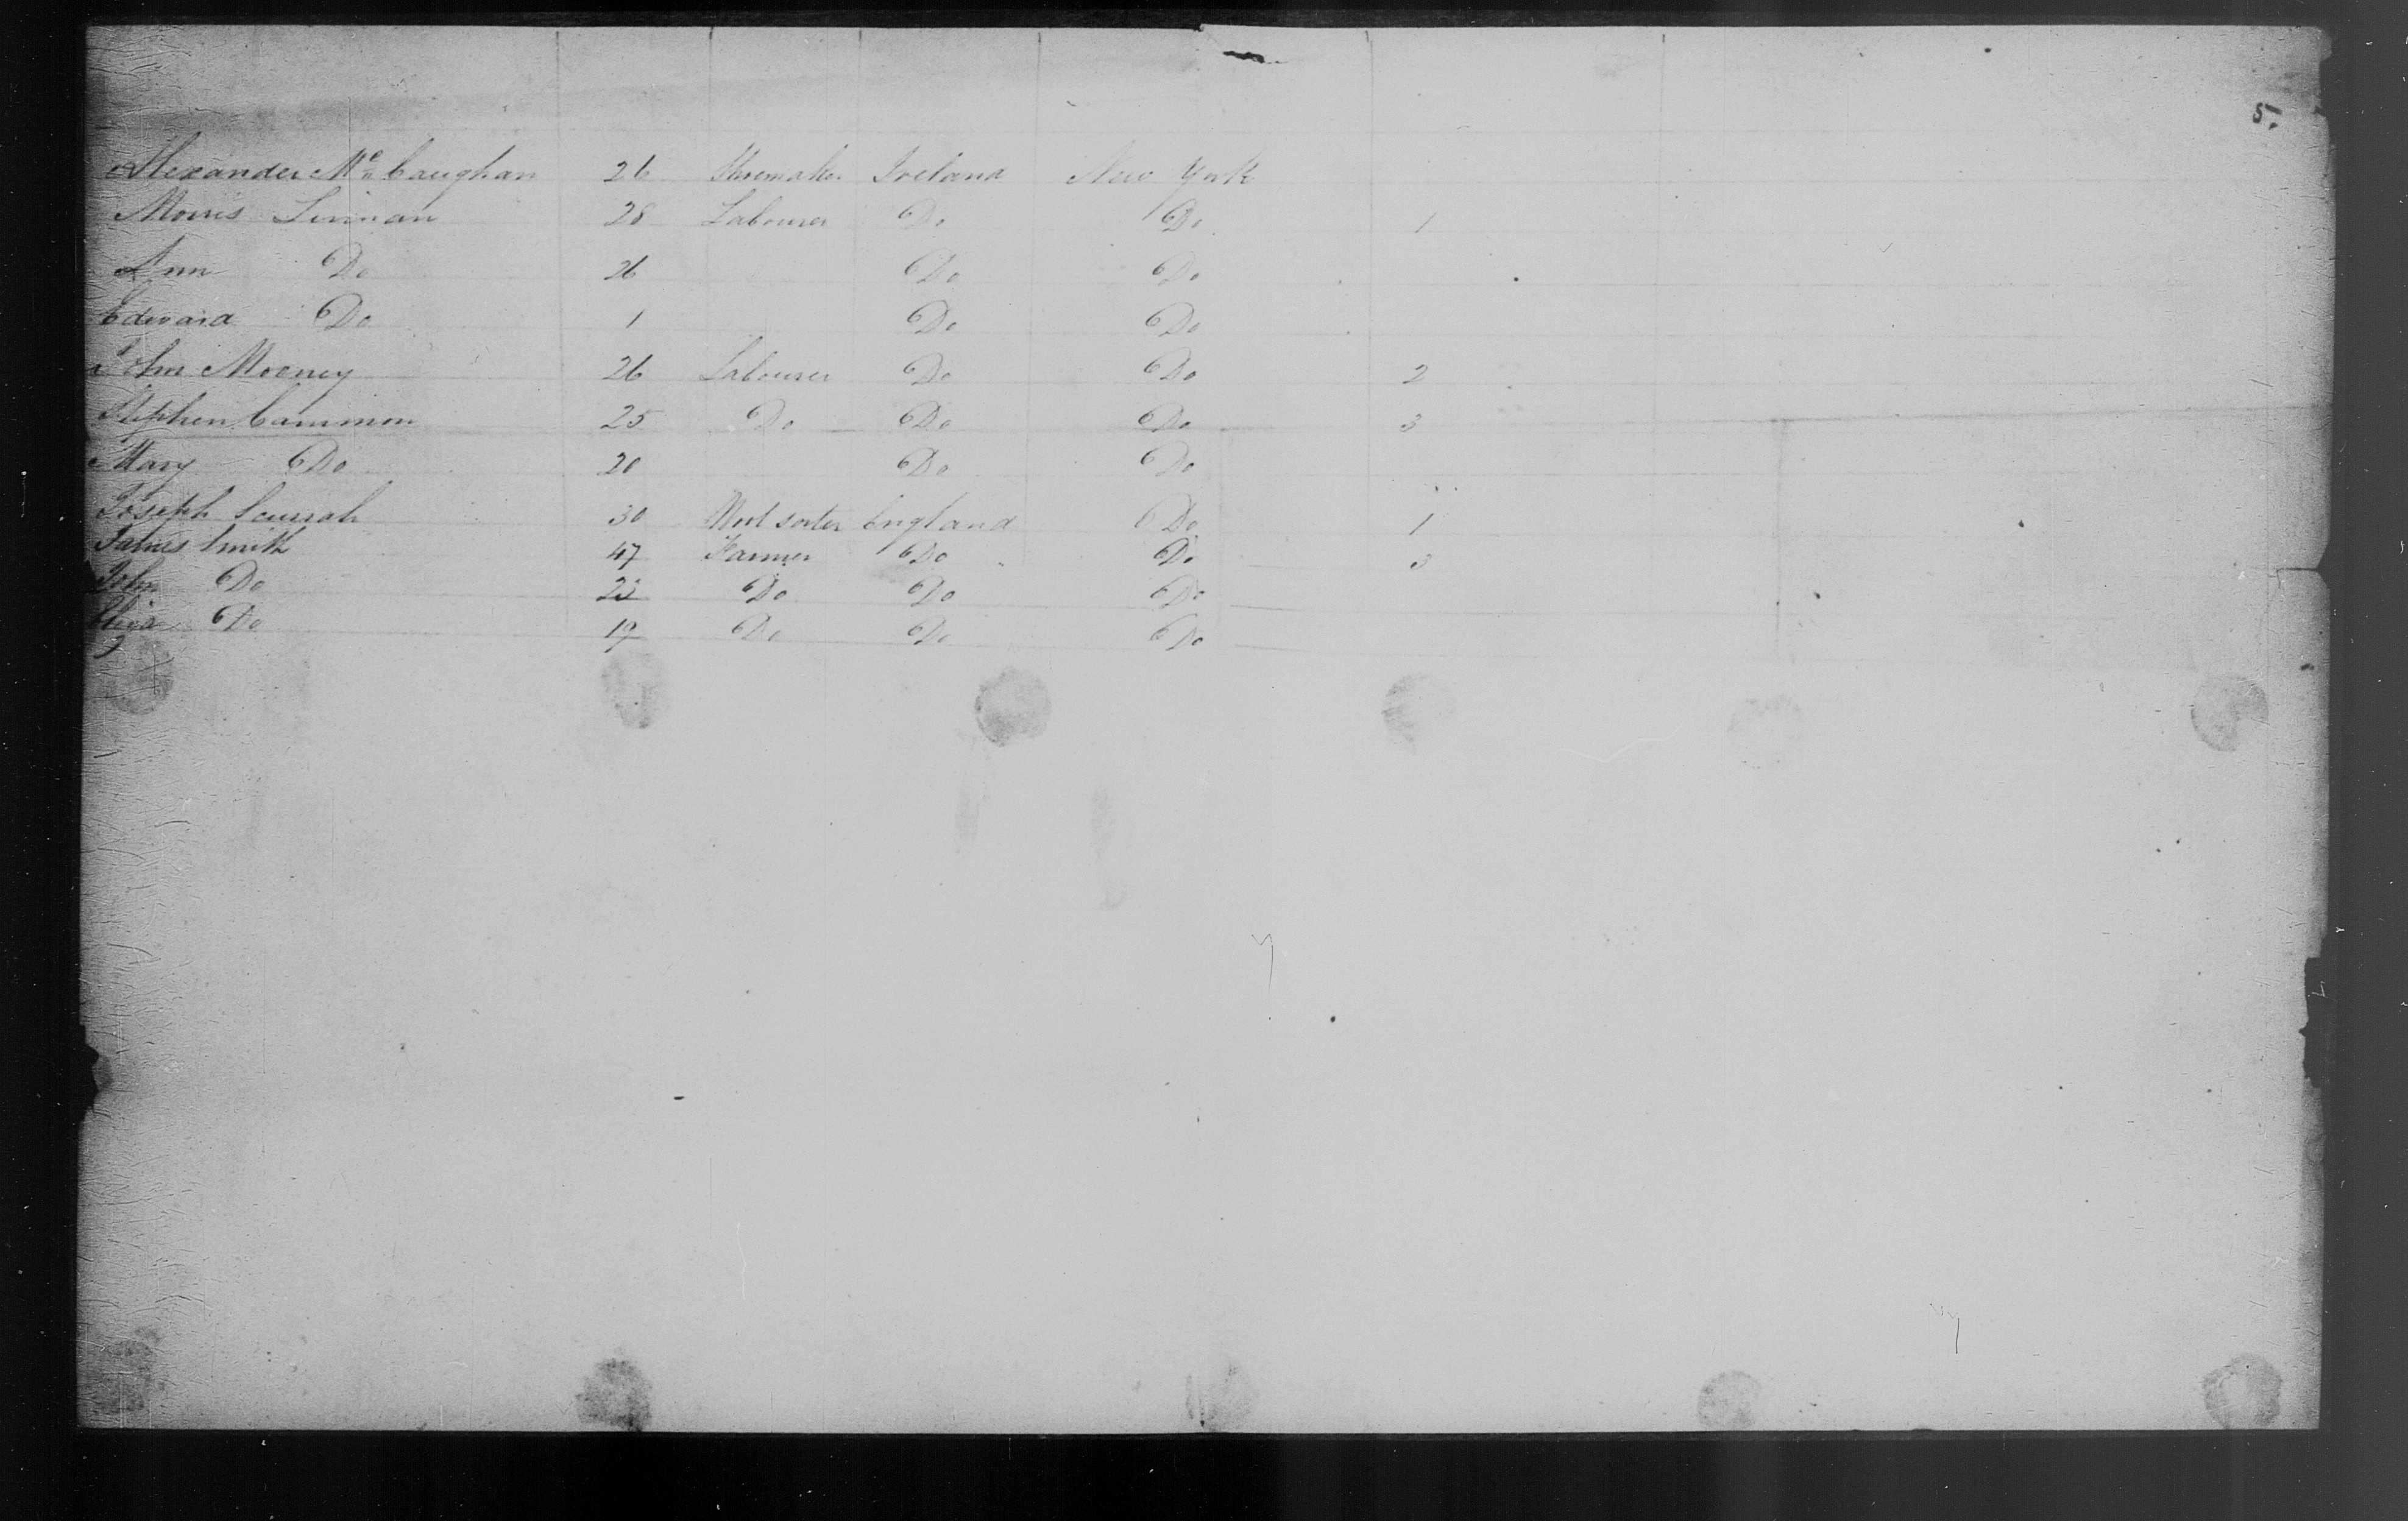 5.
Alexander McCaughan 26 Shoemaker Ireland New York
Morris 28 Labourer Do Do 1
Ann Do 26 Do Do
Edward Do 1 Do Do
John Mooney 26 Labourer Do Do 2
Stephen Cammon 25 Do Do Do 3
Mary Do 20 Do Do
Joseph Scurrah 30 Wool sorter England Do 1
James Smith 47 Farmer Do Do 3
John Do Do Do Do
Eliza Do 19 Do Do Do